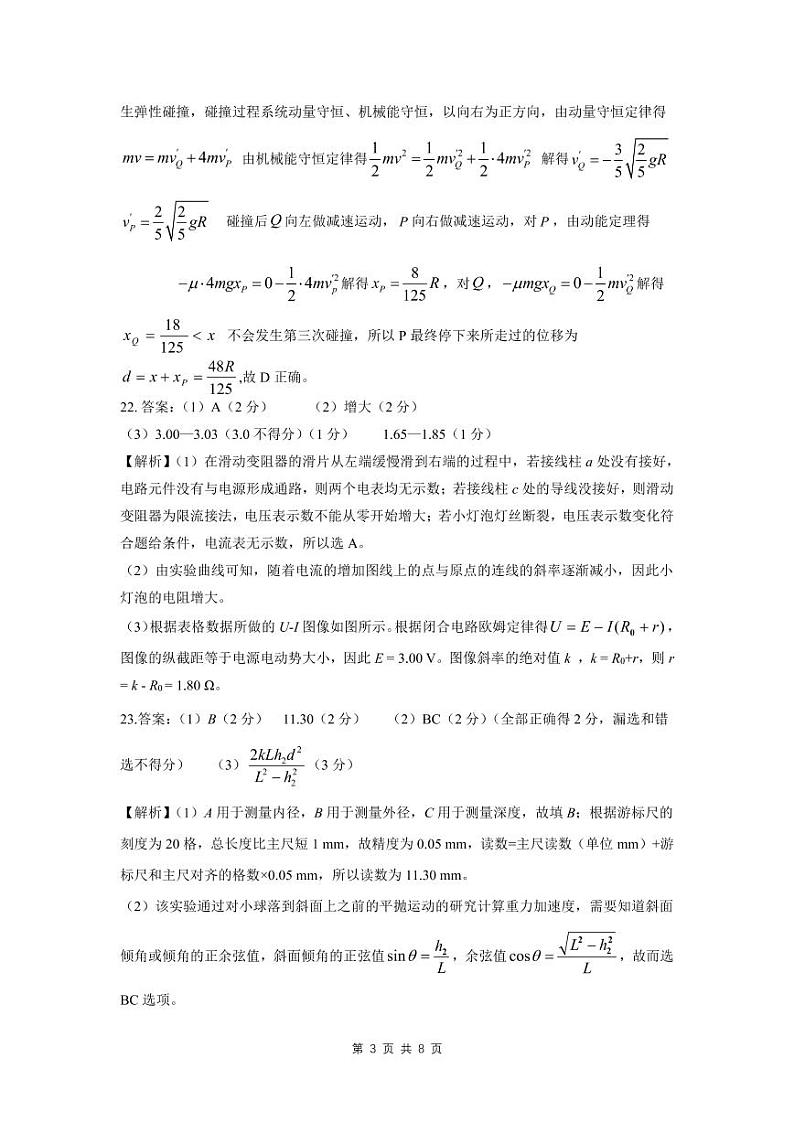 生弹性碰撞，碰撞过程系统动量守恒、机械能守恒，以向右为正方向，由动量守恒定律得
$mv = mv_Q^{'} + 4mv_P^{'}$ 由机械能守恒定律得 $\frac{1}{2}mv^2 = \frac{1}{2}mv_Q^{'2} + \frac{1}{2}\cdot 4mv_P^{'2}$ 解得 $v_Q^{'} = -\frac{3}{5}\sqrt{\frac{2}{5}gR}$
$v_P^{'} = \frac{2}{5}\sqrt{\frac{2}{5}gR}$ 碰撞后 Q 向左做减速运动， P 向右做减速运动，对 P ，由动能定理得
$-\mu\cdot 4mgx_P = 0 - \frac{1}{2}\cdot 4mv_p^{'2}$ 解得 $x_P = \frac{8}{125}R$ ，对 Q ， $-\mu mgx_Q = 0 - \frac{1}{2}mv_Q^{'2}$ 解得
$x_Q = \frac{18}{125} < x$ 不会发生第三次碰撞，所以 P 最终停下来所走过的位移为
$d = x + x_P = \frac{48R}{125}$ ,故 D 正确。
22. 答案：（1）A（2 分） （2）增大（2 分）
（3）3.00—3.03（3.0 不得分）（1 分） 1.65—1.85（1 分）
【解析】（1）在滑动变阻器的滑片从左端缓慢滑到右端的过程中，若接线柱 a 处没有接好，
电路元件没有与电源形成通路，则两个电表均无示数；若接线柱 c 处的导线没接好，则滑动
变阻器为限流接法，电压表示数不能从零开始增大；若小灯泡灯丝断裂，电压表示数变化符
合题给条件，电流表无示数，所以选 A。
（2）由实验曲线可知，随着电流的增加图线上的点与原点的连线的斜率逐渐减小，因此小
灯泡的电阻增大。
（3）根据表格数据所做的 U-I 图像如图所示。根据闭合电路欧姆定律得 $U = E - I(R_0 + r)$ ，
图像的纵截距等于电源电动势大小，因此 E = 3.00 V。图像斜率的绝对值 k ，k = R₀+r，则 r
= k - R₀ = 1.80 Ω。
23.答案：（1）B（2 分） 11.30（2 分） （2）BC（2 分）（全部正确得 2 分，漏选和错
选不得分） （3） $\frac{2kLh_2d^2}{L^2 - h_2^2}$ （3 分）
【解析】（1）A 用于测量内径，B 用于测量外径，C 用于测量深度，故填 B；根据游标尺的
刻度为 20 格，总长度比主尺短 1 mm，故精度为 0.05 mm，读数=主尺读数（单位 mm）+游
标尺和主尺对齐的格数×0.05 mm，所以读数为 11.30 mm。
（2）该实验通过对小球落到斜面上之前的平抛运动的研究计算重力加速度，需要知道斜面
倾角或倾角的正余弦值，斜面倾角的正弦值 $\sin\theta = \frac{h_2}{L}$ ，余弦值 $\cos\theta = \frac{\sqrt{L^2 - h_2^2}}{L}$ ，故而选
BC 选项。
第 3 页 共 8 页